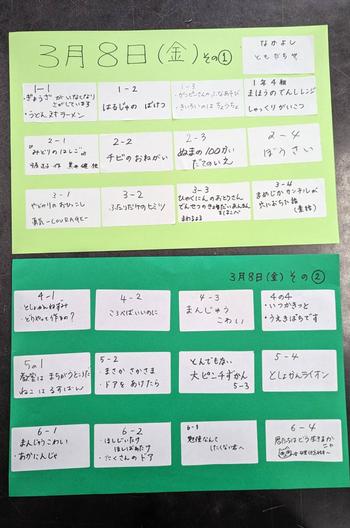 3月8日(金)その①
なかよし
ともだちや
1-1
・ぎょうざがいなくなり
さがしています
・うどん対ラーメン
1-2
はるじゅのばけつ
1-3
1年4組
まほうのでんしレンジ
しゃっくりがいこつ
2-1
『みどりのはしご』
2-2
チビのおねがい
2-3
ぬまの100かい
だてのいえ
2-4
ぼうさい
3-1
やどかりのおひっこし
勇気-COURAGE-
3-2
ふたりだけのヒミツ
3-3
ひゃくにんのおとうさん
3-4
まめじかカンチルが
穴におちた話
(素話)
3月8日(金)その②
4-1
としょかんねずみ
どうやって作るの?
4-2
ころべばいいのに
4-3
まんじゅう
こわい
4の4
・いつかきっと
・うえきばちです
5の1
教室はまちがうところだ
ねこはるすばん
5-2
・まさかさかさま
・ドアをあけたら
とんでもない
大ピンチずかん
5-3
5-4
としょかんライオン
6-1
まんじゅうこわい
・あかにんじゃ
6-2
・ほしじいたけ
ほしばあたけ
・たくさんのドア
6-3
勉強なんて
したくない君へ
6-4
君たちはどう生きるか